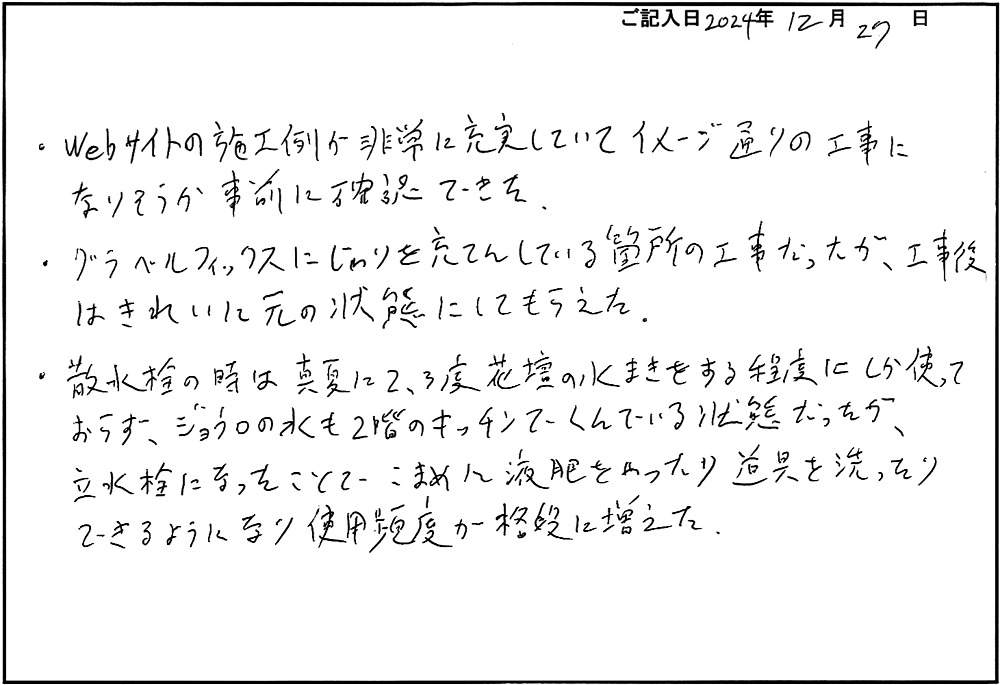 ご記入日 2024年 12月 27日
・Webサイトの施工例が非常に充実していてイメージ通りの工事に
なりそうか事前に確認できた.
・グラベルフィックスにじゃりを充てんしている箇所の工事だったが、工事後
はきれいに元の状態にしてもらえた.
・散水栓の時は真夏に2、3度花壇の水まきをする程度にしか使って
おらず、ジョウロの水も2階のキッチンでくんでいる状態だったが、
立水栓になったことでこまめに液肥をやったり道具を洗ったり
できるようになり使用頻度が格段に増えた.